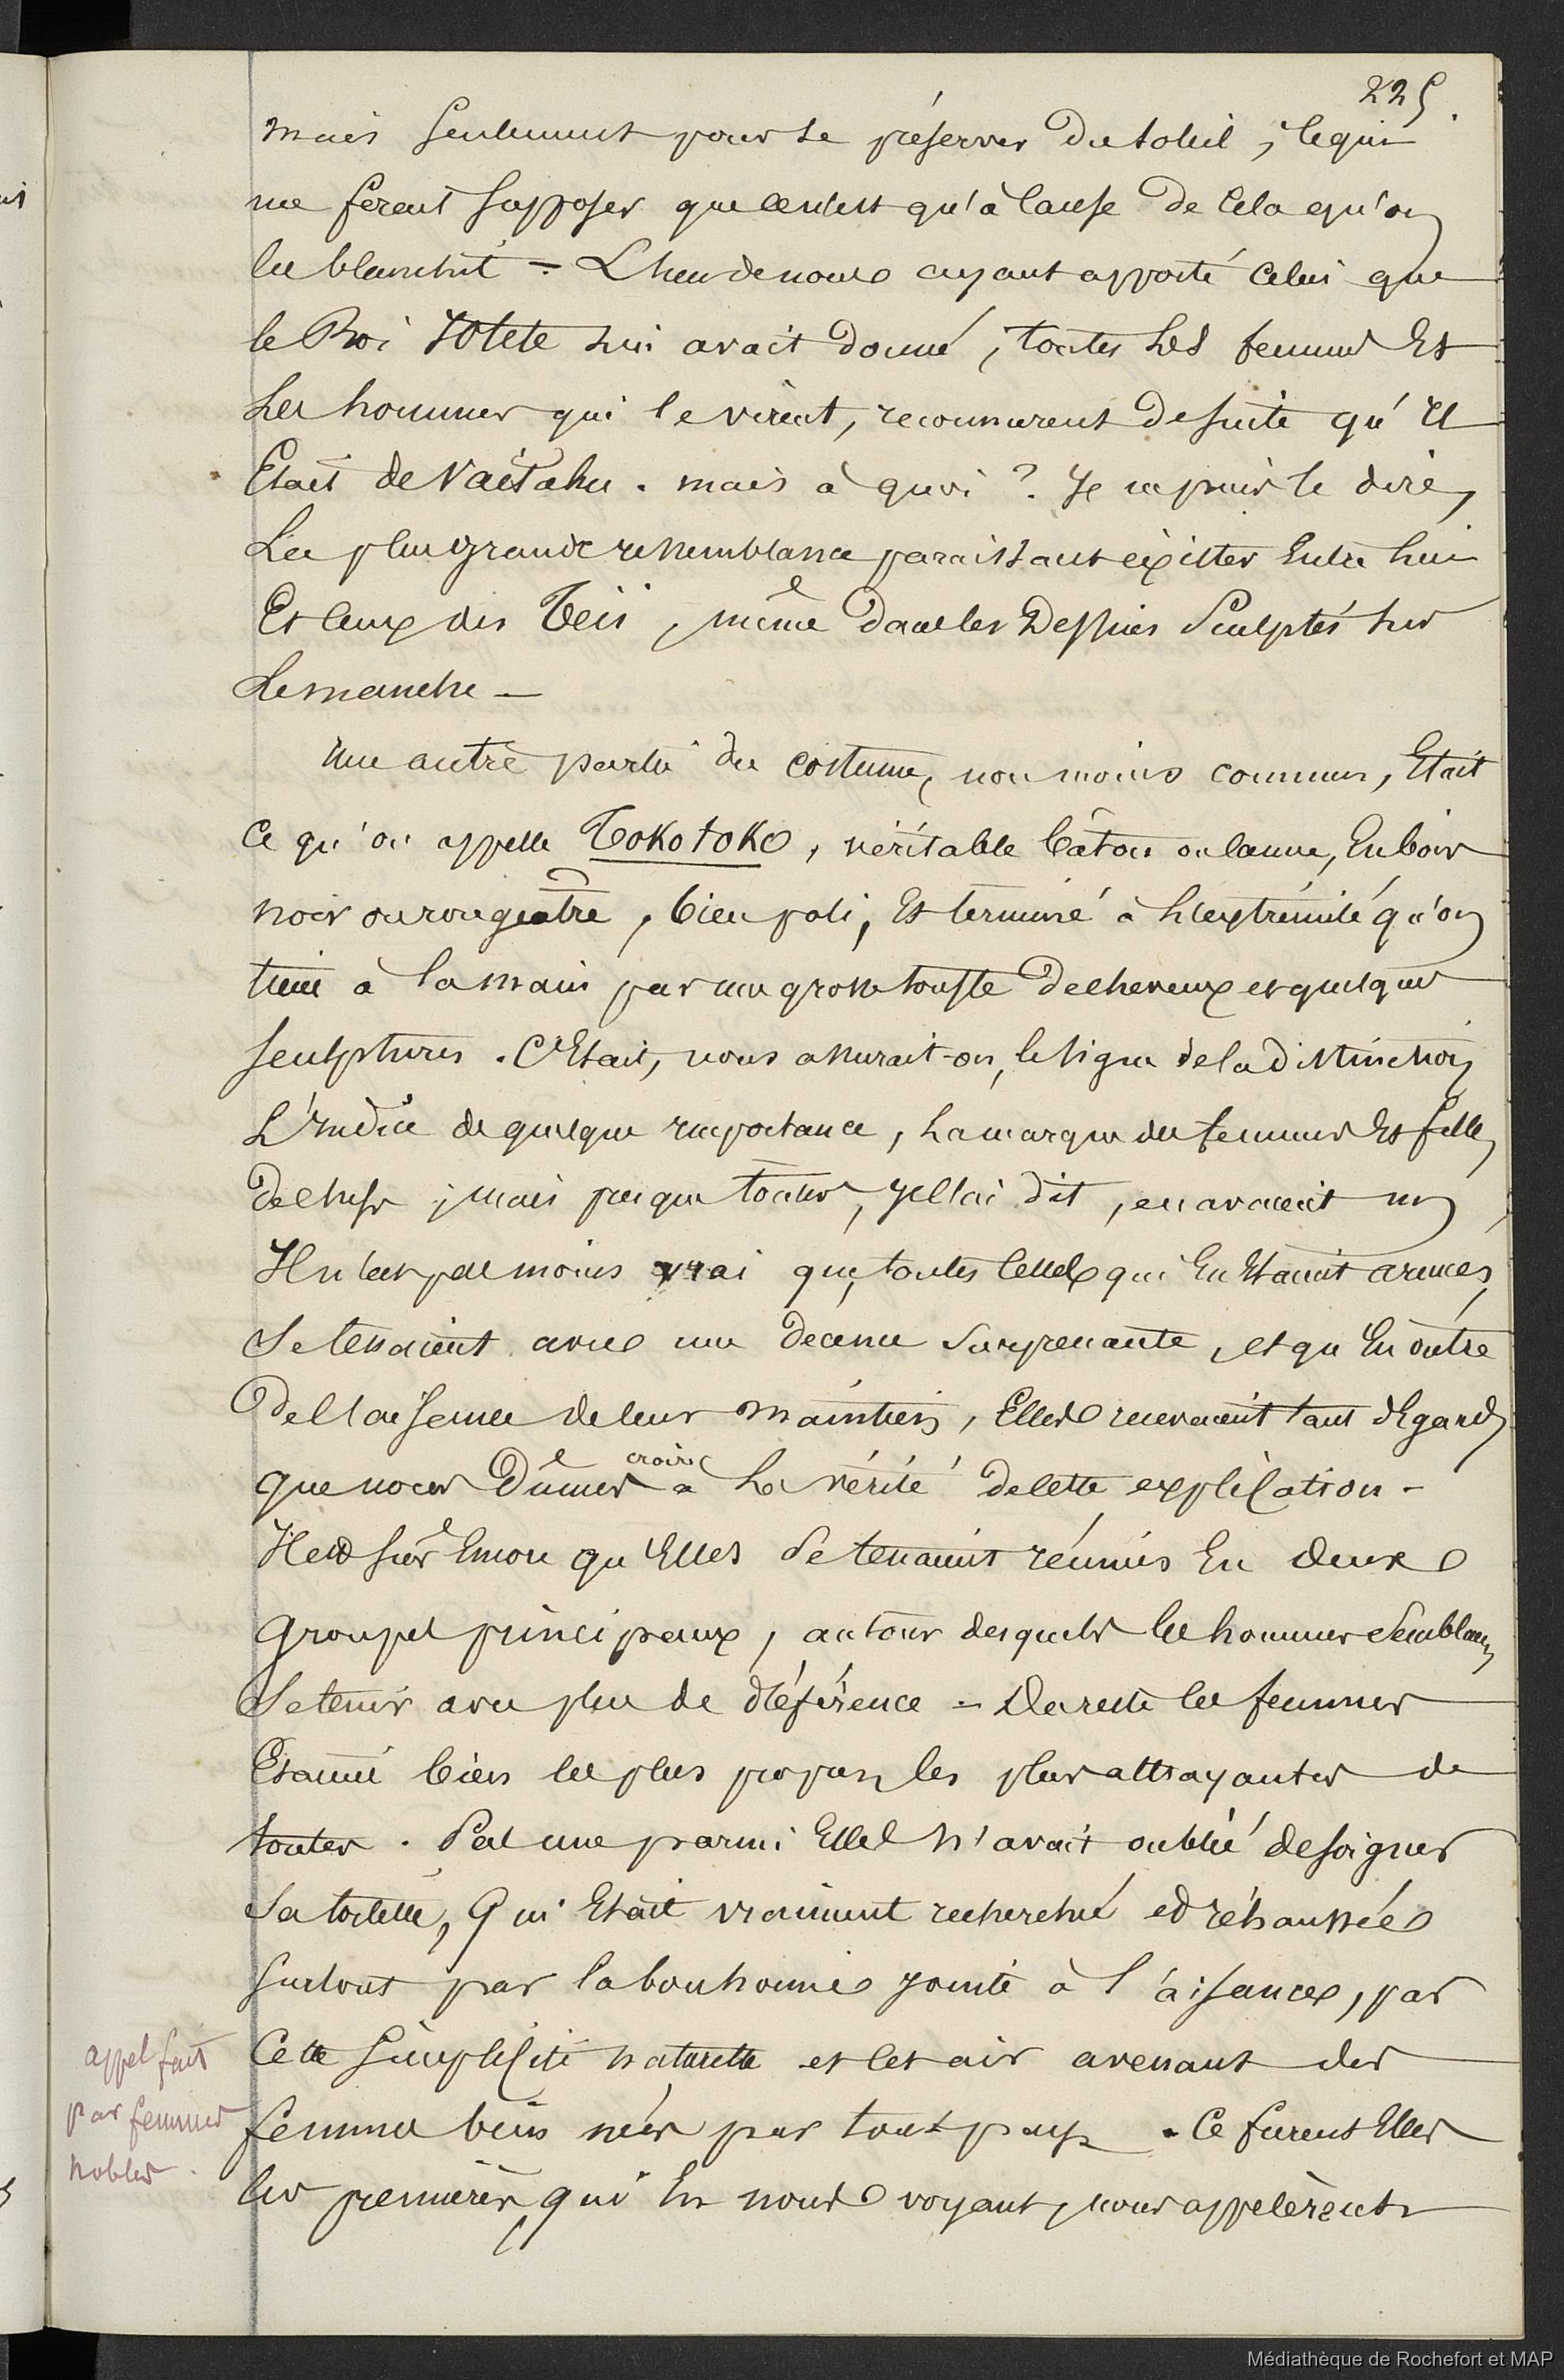 225
mais seulement pour se préserver du soleil, ce qui
me ferait supposer que ce n'est qu'à cause de cela qu'on
les blanchit = L'un de nous ayant apporté celui que
le Roi Iotete lui avait donné, toutes les femmes et
les hommes qui le virent, reconnurent de suite qu'il
Etait de Vaitahu. mais à quoi ? Je ne puis le dire,
La plus grande ressemblance paraissant exister Entre lui
Et ceux des Teii, même dans les Dessins Sculptés sur
le manche —
Une autre partie du costume, non moins commune, Etait
ce qu'on appelle Tokotoko, véritable bâton ou canne, En bois
noir ou rougeâtre, bien poli, Et terminé à l'extrémité qu'on
tient à la main par une grosse touffe de cheveux et quelques
sculptures. C'Etait, nous assurait-on, le signe de la distinction
L'indice de quelque importance, la marque des femmes Et filles
de chefs ; mais presque toutes, je l'ai dit, en avaient un
Il n'est pas moins vrai que, toutes celles qui En Etaient armées,
Se tenaient avec une décence Surprenante, et qu'En outre
De l'aisance de leur maintien, Elles recevaient tant d'Egards
que nous Dûmes croire à la vérité de cette explication -
Il est sûr Encore qu'Elles Se tenaient réunies En deux
groupes principaux, autour desquels les hommes Semblaient
Se tenir avec plus de déférence = Du reste les femmes
Etaient bien les plus propres, les plus attrayantes de
toutes. Pas une parmi Elles n'avait oublié de soigner
Sa toilette, Qui Etait vraiment recherchée et réhaussée
Surtout par la bonhomie jointe à l'aisance, par
Cette Simplicité naturelle et cet air avenant des
femmes bien nées par tout pays. Ce furent Elles
les premières, qui En nous voyant, nous appelèrent
appel fait
par femmes
nobles.
Médiathèque de Rochefort et MAP